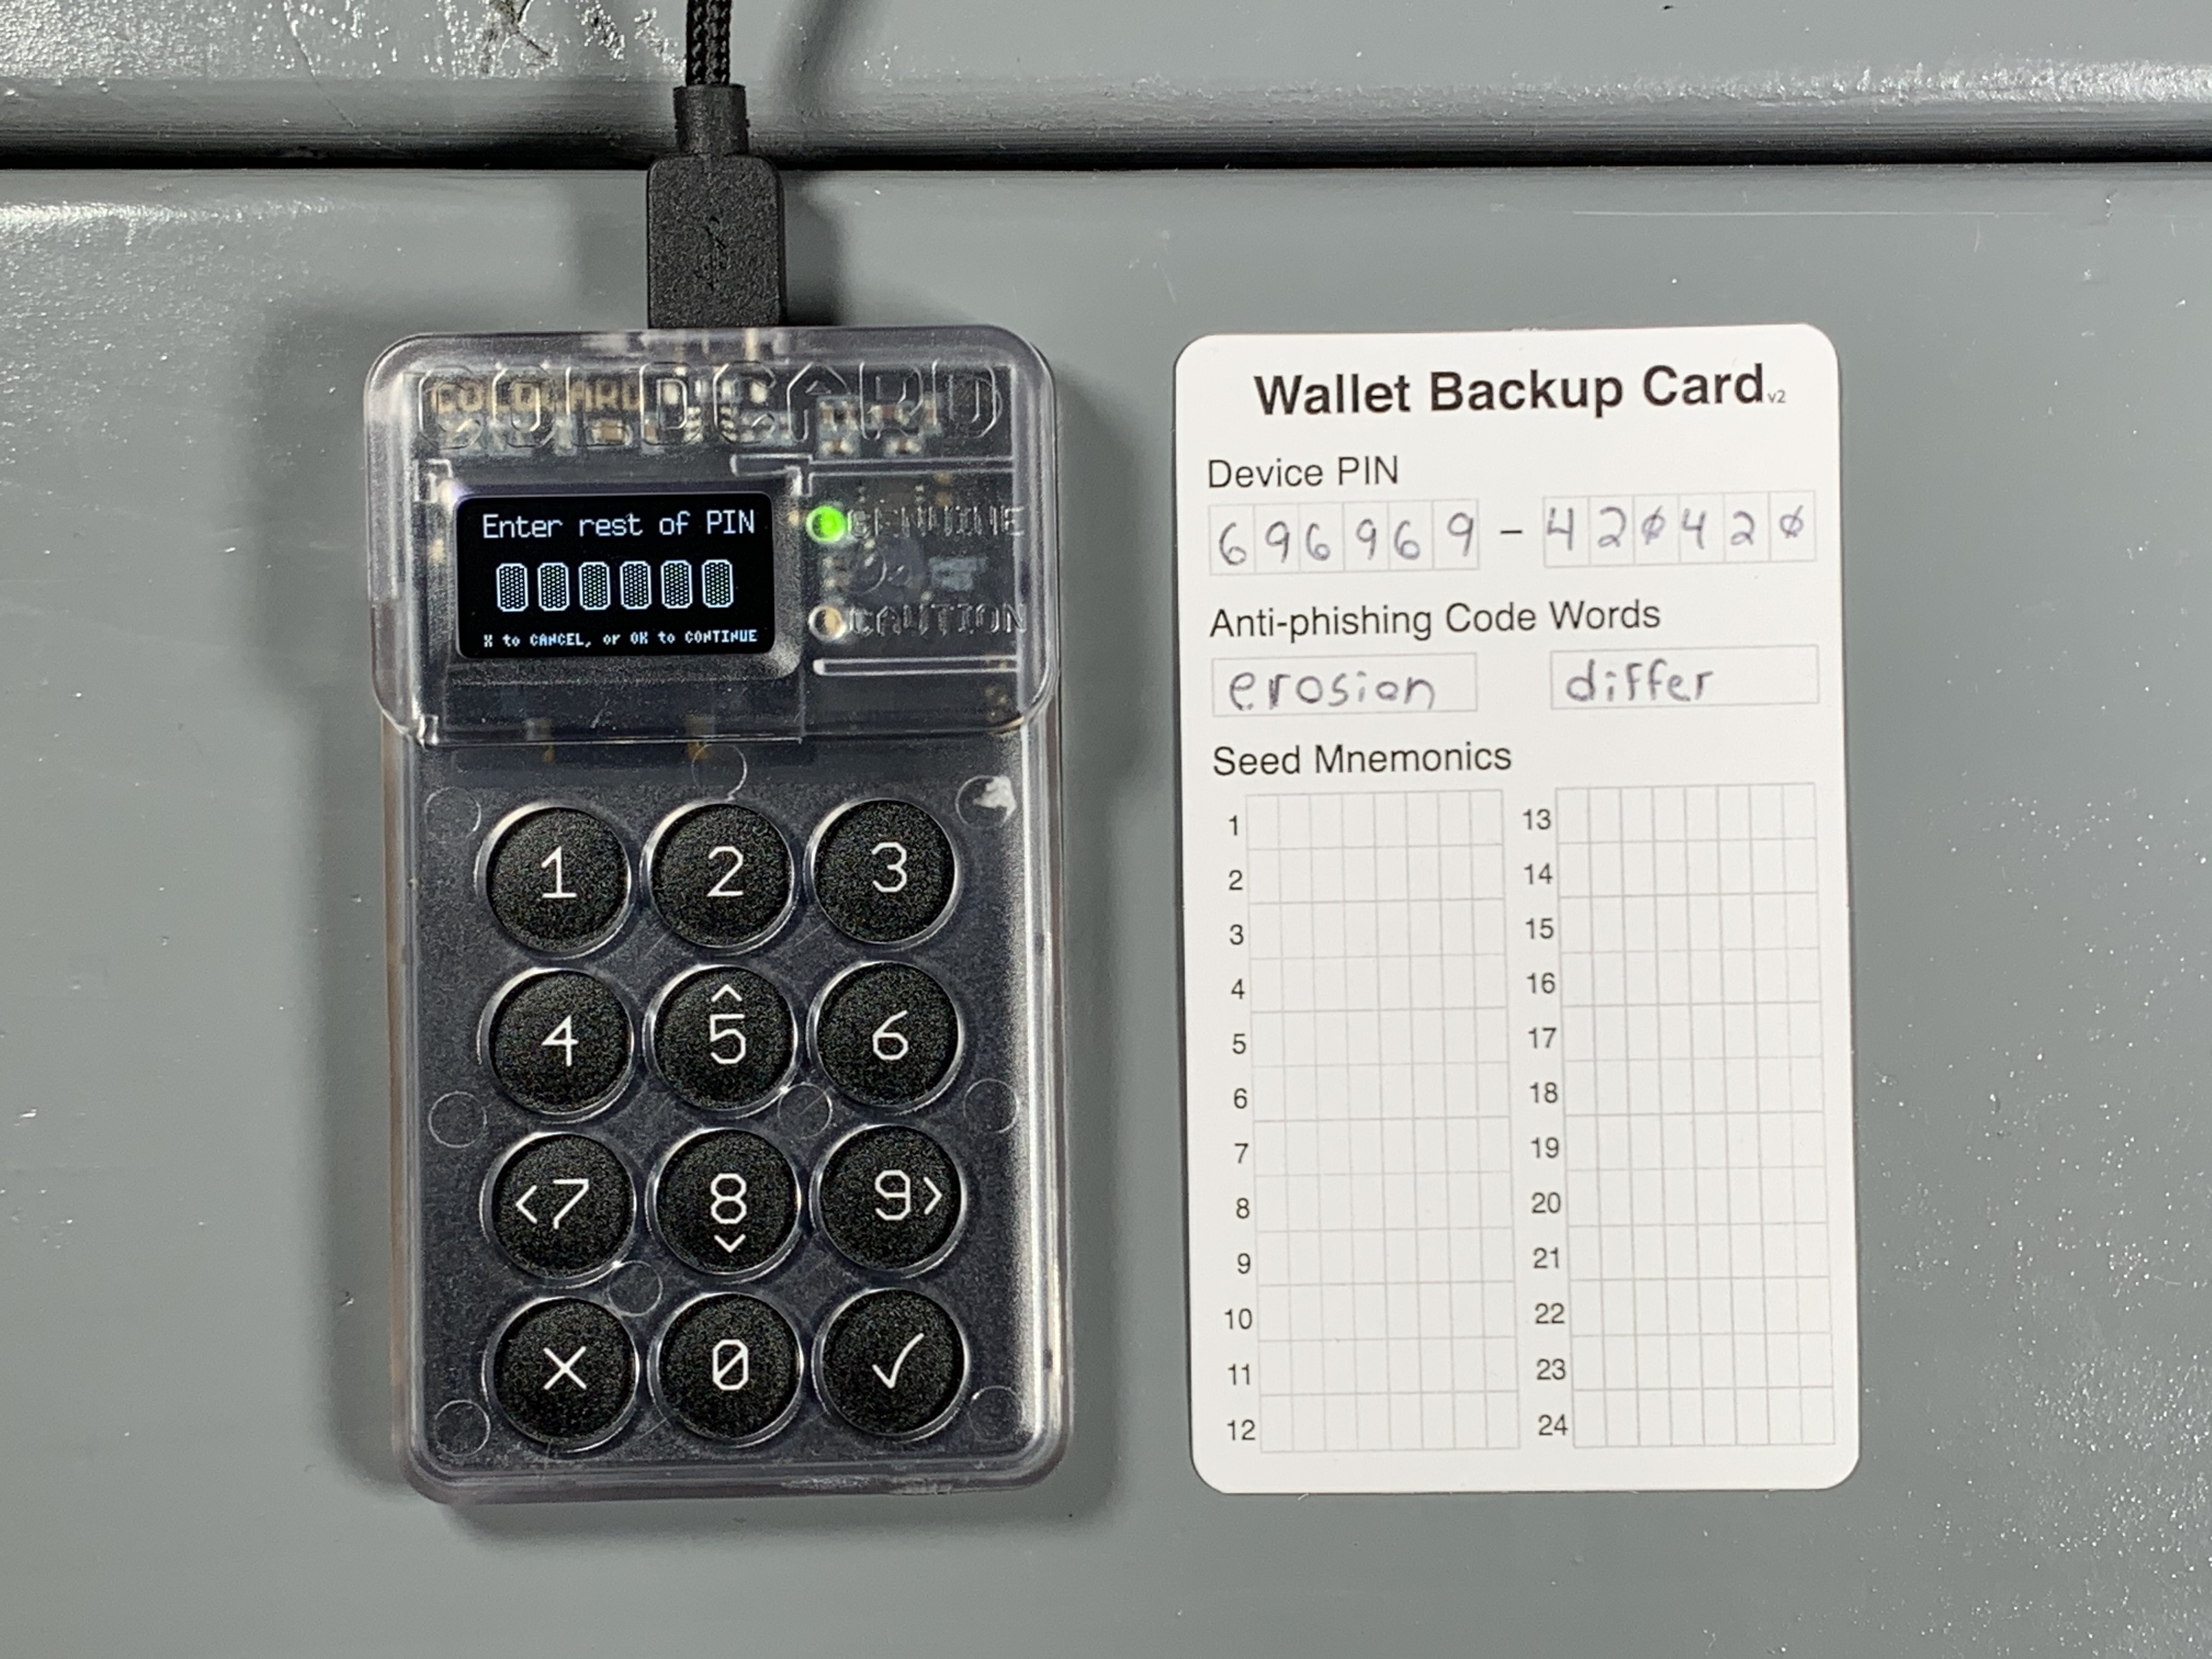 COLDCARD
Enter rest of PIN
X to CANCEL, or OK to CONTINUE
GENUINE
CAUTION
1 2 3
4 ^ 5 6
<7 8 ⌄ 9>
X 0 ✓
Wallet Backup Card v2
Device PIN
696969 - 420420
Anti-phishing Code Words
erosion differ
Seed Mnemonics
1 13
2 14
3 15
4 16
5 17
6 18
7 19
8 20
9 21
10 22
11 23
12 24